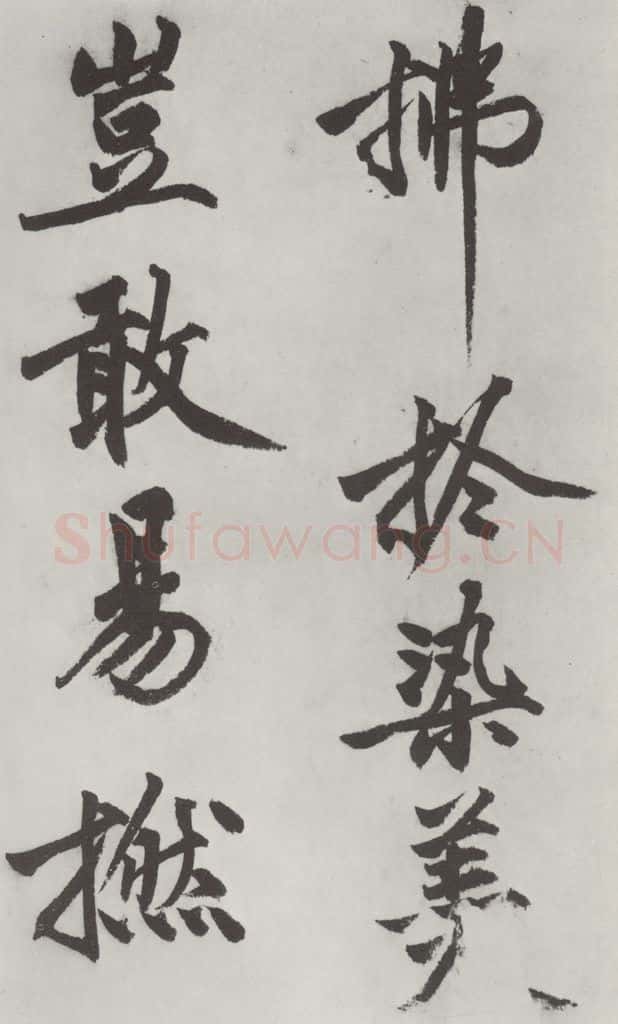 拂扵染羙
豈敢易撚
Shufawang.CN